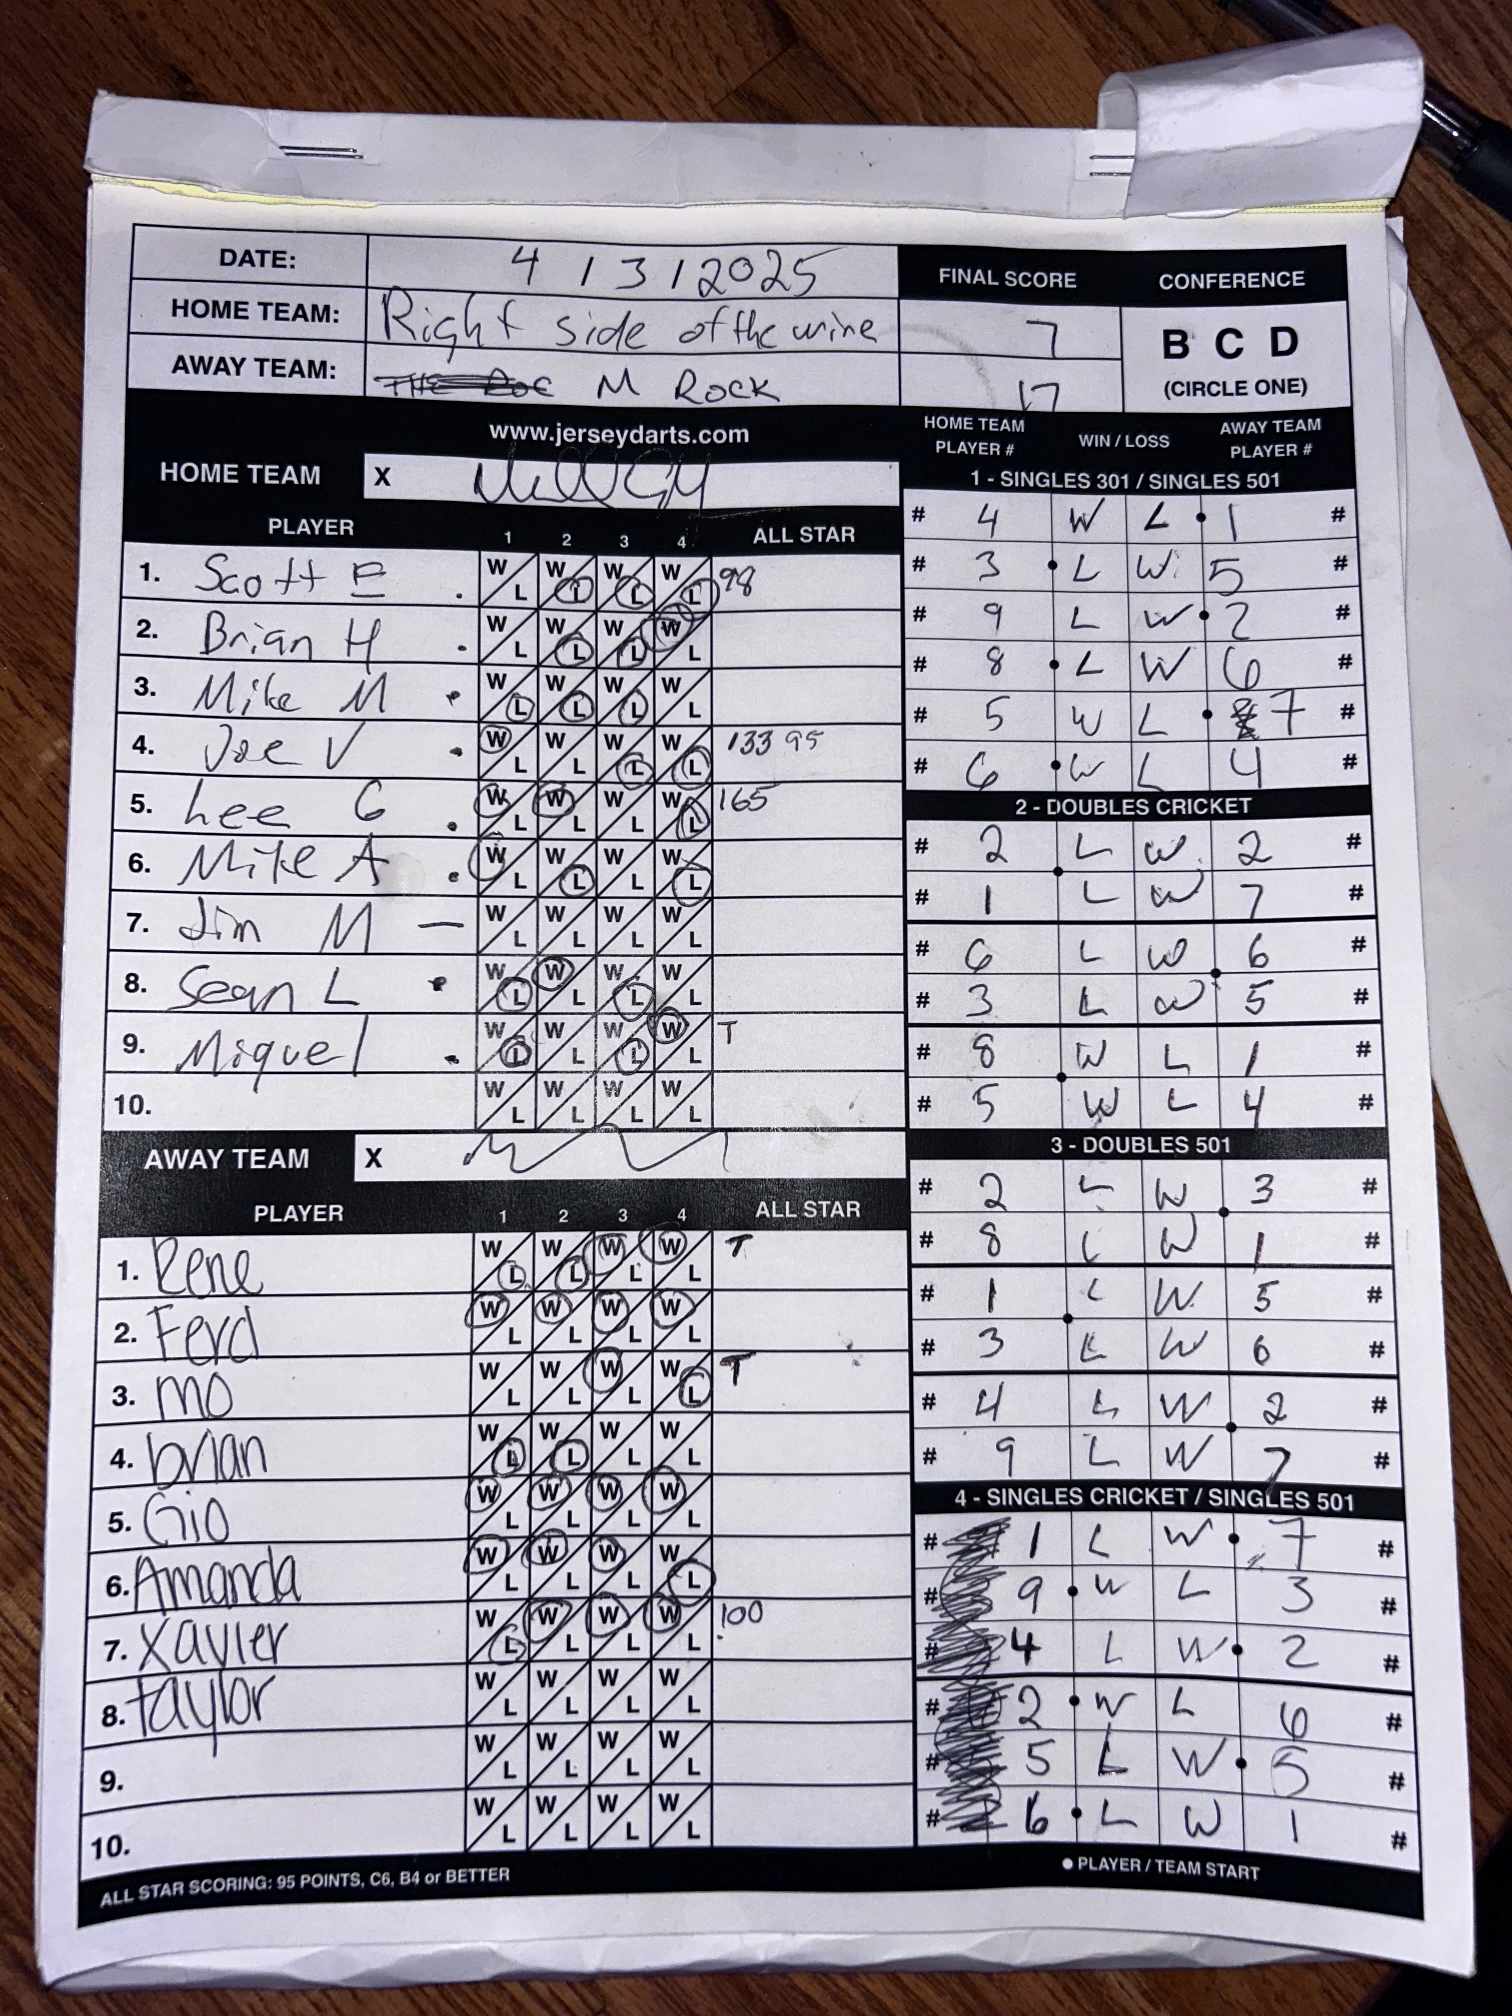 DATE: 4 / 3 / 2025 FINAL SCORE CONFERENCE
HOME TEAM: Right side of the wine 7 B C D
AWAY TEAM: M ROCK 17 (CIRCLE ONE)
www.jerseydarts.com
HOME TEAM X
PLAYER 1 2 3 4 ALL STAR
1. Scott E . W L W L W L W L 98
2. Brian H . W L W L W L W L
3. Mike M . W L W L W L W L
4. Joe V . W L W L W L W L 133 95
5. Lee G . W L W L W L W L 165
6. Mike A . W L W L W L W L
7. Jim M — W L W L W L W L
8. Sean L . W L W L W L W L
9. Miguel . W L W L W L W L T
10. W L W L W L W L
AWAY TEAM X
PLAYER 1 2 3 4 ALL STAR
1. Rene W L W L W L W L T
2. Ferd W L W L W L W L
3. mo W L W L W L W L T
4. brian W L W L W L W L
5. Gio W L W L W L W L
6. Amanda W L W L W L W L
7. Xavier W L W L W L W L 100
8. taylor W L W L W L W L
9. W L W L W L W L
10. W L W L W L W L
ALL STAR SCORING: 95 POINTS, C6, B4 or BETTER
HOME TEAM PLAYER # WIN / LOSS AWAY TEAM PLAYER #
1 - SINGLES 301 / SINGLES 501
# 4 W L 1 #
# 3 L W 5 #
# 9 L W 2 #
# 8 L W 6 #
# 5 W L 7 #
# 6 W L 4 #
2 - DOUBLES CRICKET
# 2 L W 2 #
# 1 L W 7 #
# 6 L W 6 #
# 3 L W 5 #
# 8 W L 1 #
# 5 W L 4 #
3 - DOUBLES 501
# 2 L W 3 #
# 8 L W 1 #
# 1 L W 5 #
# 3 L W 6 #
# 4 L W 2 #
# 9 L W 7 #
4 - SINGLES CRICKET / SINGLES 501
# 1 L W 7 #
# 9 W L 3 #
# 4 L W 2 #
# 2 W L 6 #
# 5 L W 5 #
# 6 L W 1 #
● PLAYER / TEAM START